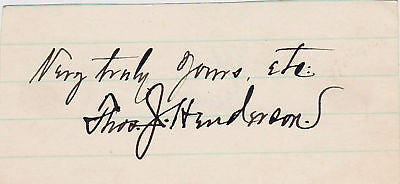 Very truly Yours, etc:
Thos. J. Henderson.